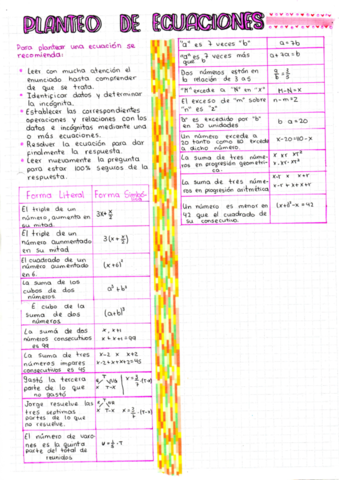 PLANTEO DE ECUACIONES
Para plantear una ecuación se
recomienda:
• Leer con mucha atención el
enunciado hasta comprender
de que se trata.
• Identificar datos y determinar
la incógnita.
• Establecer las correspondientes
operaciones y relaciones con los
datos e incógnitas mediante una
o más ecuaciones.
• Resolver la ecuación para dar
finalmente la respuesta.
• Leer nuevamente la pregunta
para estar 100% seguros de la
respuesta.
Forma Literal
Forma Simbó-
El triple de un
número, aumenta en
su mitad.
3x + x/2
El triple de un
número aumentado
en su mitad
3(x + x/2)
El cuadrado de un
número aumentado
en 6.
(x+6)²
La suma de los
cubos de dos
números
a³+b³
E cubo de la
suma de dos
números
(a+b)³
La suma de dos
números consecutivos
es 99
x, x+1
x+x+1=99
La suma de tres
números impares
consecutivos es 45
x-2 x x+2
x-2+x+x+2=45
gastó la tercera
parte de lo que
no gastó
Jorge resuelve las
tres septimas
partes de lo que
no resuelve.
El número de varo-
nes es la quinta
parte del total de
reunidos
"a" es 7 veces "b"
a=7b
"a" es 7 veces más
que b
a+7a=b
Dos números están en
relación de 3 a 5
a/b = 3/5
"M" excede a "N" en "x"
M-N=x
El exceso de "m" sobre
"n" es "2"
n-m=2
"b" es excedido por "b"
en 20 unidades
b a=20
Un número excede a
20 tanto como 80 excede
a dicho número
x-20=80-x
La suma de tres núme-
ros en progresión geométri-
ca.
La suma de tres núme-
ros en progresión aritmética
Un número es menor en
42 que el cuadrado de
su consecutivo.
(x+1)²-x=42